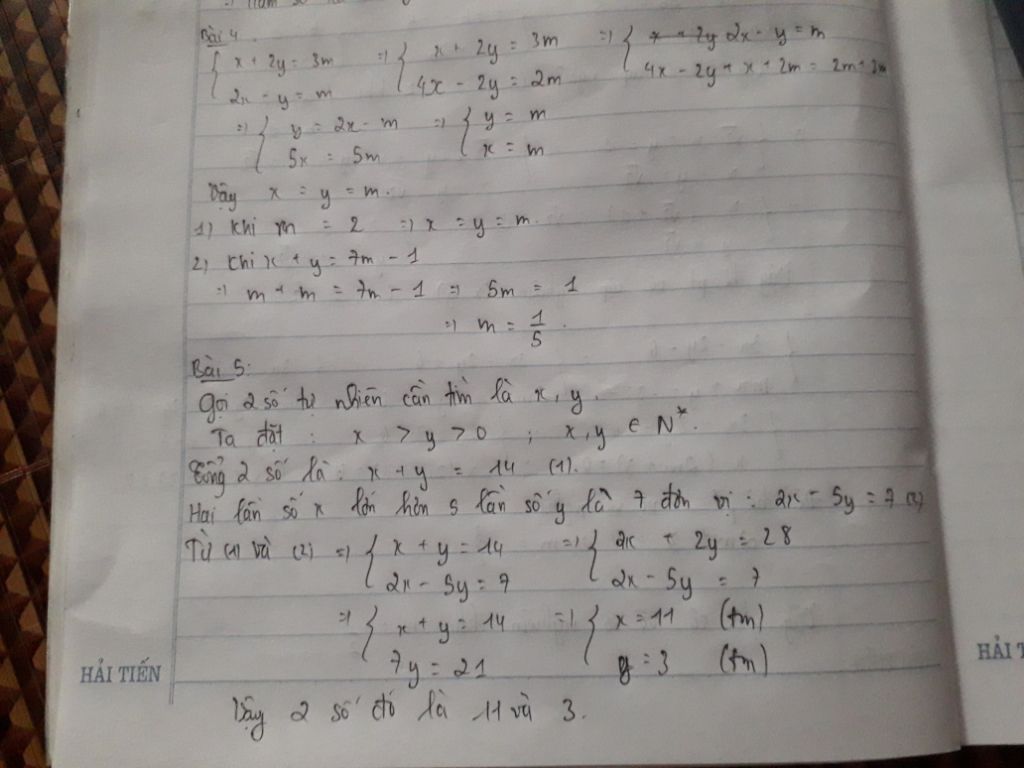 Bài 4.
{ x + 2y = 3m ; 2x - y = m => { x + 2y = 3m ; 4x - 2y = 2m => { 2x - y = m ; 4x - 2y + x + 2m = 2m + 3m
=> { y = 2x - m ; 5x = 5m => { y = m ; x = m
Vậy x = y = m.
1) Khi m = 2 => x = y = m.
2) Khi x + y = 7m - 1
=> m + m = 7m - 1 => 5m = 1
=> m = 1/5.
Bài 5:
Gọi 2 số tự nhiên cần tìm là x, y.
Ta đặt : x > y > 0 ; x, y ∈ N*.
Tổng 2 số là: x + y = 14 (1).
Hai lần số x lớn hơn 5 lần số y là 7 đơn vị : 2x - 5y = 7 (2)
Từ (1) và (2) => { x + y = 14 ; 2x - 5y = 7 => { 2x + 2y = 28 ; 2x - 5y = 7
=> { x + y = 14 ; 7y = 21 => { x = 11 (tm) ; y = 3 (tm)
Vậy 2 số đó là 11 và 3.
HẢI TIẾN
HẢI T